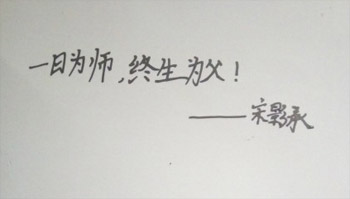 一日为师，终生为父！
——宋影承